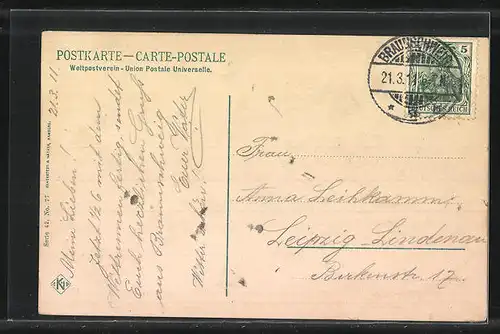 POSTKARTE — CARTE-POSTALE
Weltpostverein - Union Postale Universelle.
21.3.11.
Meine Lieben!
Jetzt ½ 6 mit dem
Wettrennen fertig, sendet
Euch herzlichen Gruß
aus Braunschweig
Euer Vater
Serie 41, No. 77
BRAUNSCHWEIG
21.3.11
5
DEUTSCHES REICH
Frau
Anna Leihkamm
Leipzig-Lindenau
Birkenstr 17.